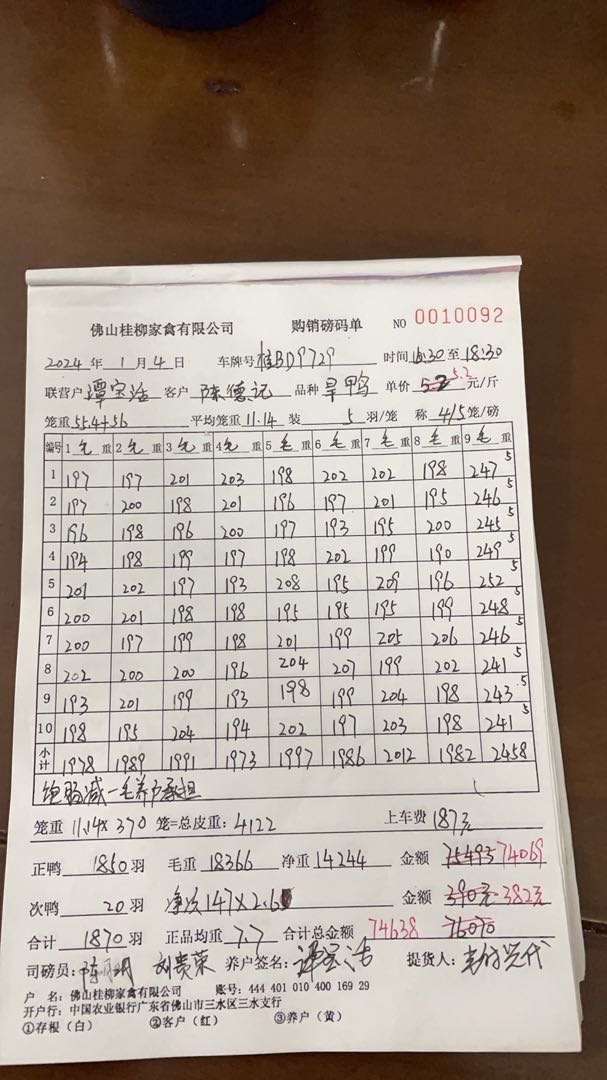 佛山桂柳家禽有限公司 购销磅码单 NO 0010092
2024 年 1 月 4 日 车牌号 桂BD9729 时间 16:30 至 18:30
联营户 谭宝洁 客户 陈德记 品种 旱鸭 单价 5.3 5.2 元/斤
笼重 55.4+56 平均笼重 11.14 装 5 羽/笼 称 4/5 笼/磅
编号 1 毛 重 2 毛 重 3 毛 重 4 毛 重 5 毛 重 6 毛 重 7 毛 重 8 毛 重 9 毛 重
1 197 197 201 203 198 202 202 198 247 5
2 197 200 198 201 196 197 201 195 246 5
3 196 198 196 200 197 193 195 200 245 5
4 194 198 199 197 198 202 199 190 249 5
5 201 202 197 193 208 195 209 196 252 5
6 200 201 198 198 195 195 195 199 248 5
7 200 197 199 198 201 199 205 206 246 5
8 202 200 200 196 204 207 199 202 241 5
9 193 201 199 193 198 199 204 198 243 5
10 198 195 204 194 202 197 203 198 241 5
小计 1978 1989 1991 1973 1997 1986 2012 1982 2458
减一毛养户承担
笼重 11.14× 370 笼=总皮重: 4122 上车费 187元
正鸭 1850 羽 毛重 18366 净重 14244 金额 75493 74069
次鸭 20 羽 净次147×2.6 金额 390元 382元
合计 1870 羽 正品均重 7.7 合计总金额 74638 76070
司磅员: 刘贵荣 养户签名: 谭宝洁 提货人:
户 名: 佛山桂柳家禽有限公司 账号: 444 401 010 400 169 29
开户行: 中国农业银行广东省佛山市三水区三水支行
①存根（白） ②客户（红） ③养户（黄）